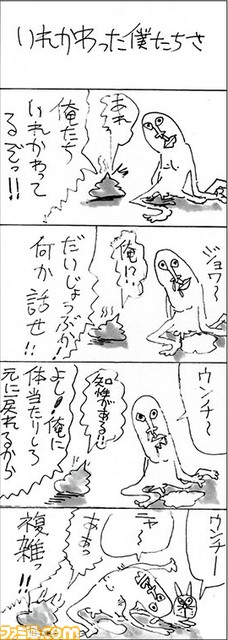 いれかわった僕たちさ
あれ
くろ
俺たち
いれかわって
るぞっ!!
ジョワ〜
俺!?
だいじょうぶか!
何か話せ!!
ウンチ〜
知性がある!!
よし!俺に
体当たりしろ
元に戻れるから
ウンチー
ニャ〜
ああっ
複雑っ!!
ファミ通.com